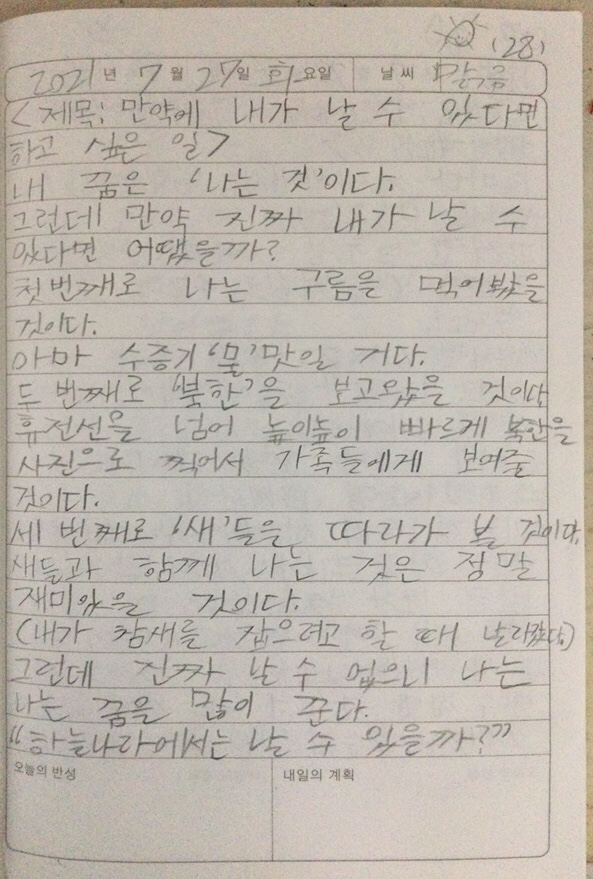 (28)
2021년 7월 27일 화요일 날씨 맑음
<제목: 만약에 내가 날 수 있다면
하고 싶은 일>
내 꿈은 '나는 것'이다.
그런데 만약 진짜 내가 날 수
있다면 어땠을까?
첫번째로 나는 구름을 먹어봤을
것이다.
아마 수증기 '물'맛일 거다.
두 번째로 '북한'을 보고왔을 것이다
휴전선을 넘어 높이높이 빠르게 북한을
사진으로 찍어서 가족들에게 보여줄
것이다.
세 번째로 '새'들을 따라가 볼 것이다.
새들과 함께 나는 것은 정말
재미있을 것이다.
(내가 참새를 잡으려고 할 때 날라갔다)
그런데 진짜 날 수 없으니 나는
나는 꿈을 많이 꾼다.
"하늘나라에서는 날 수 있을까?"
오늘의 반성 내일의 계획